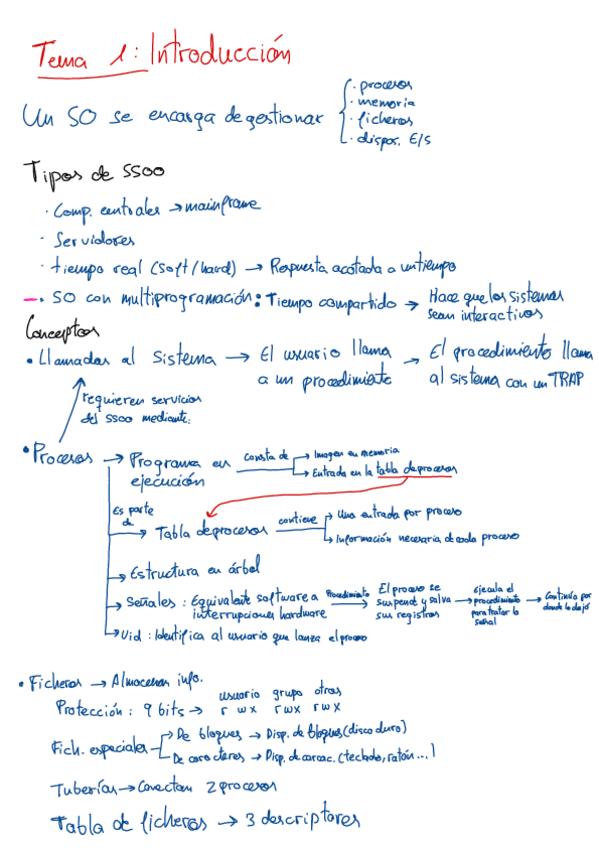 Tema 1: Introducción
Un SO se encarga de gestionar
· procesos
· memoria
· ficheros
· dispos. E/S
Tipos de SSOO
· Comp. centrales → mainframe
· Servidores
· tiempo real (soft/hard) → Respuesta acotada a un tiempo
· SO con multiprogramación: Tiempo compartido → Hace que los sistemas
sean interactivos
Conceptos
• Llamadas al sistema → El usuario llama → El procedimiento llama
a un procedimiento al sistema con un TRAP
requieren servicios
del SSOO mediante:
• Procesos → Programa en consta de → Imagen en memoria
ejecución → Entrada en la tabla de procesos
Es parte
de
→ Tabla de procesos contiene → Una entrada por proceso
→ Información necesaria de cada proceso
→ Estructura en árbol
→ Señales: Equivalente software a Procedimiento → El proceso se → ejecuta el → Continúa por
interrupciones hardware suspende y salva procedimiento donde lo dejó
sus registros para tratar la
señal
→ Uid: Identifica al usuario que lanza el proceso
• Ficheros → Almacenan info.
usuario grupo otros
Protección: 9 bits → r w x r w x r w x
Fich. especiales → De bloques → Disp. de bloques (disco duro)
→ De caracteres → Disp. de carac. (teclado, ratón...)
Tuberías → Conectan 2 procesos
Tabla de ficheros → 3 descriptores